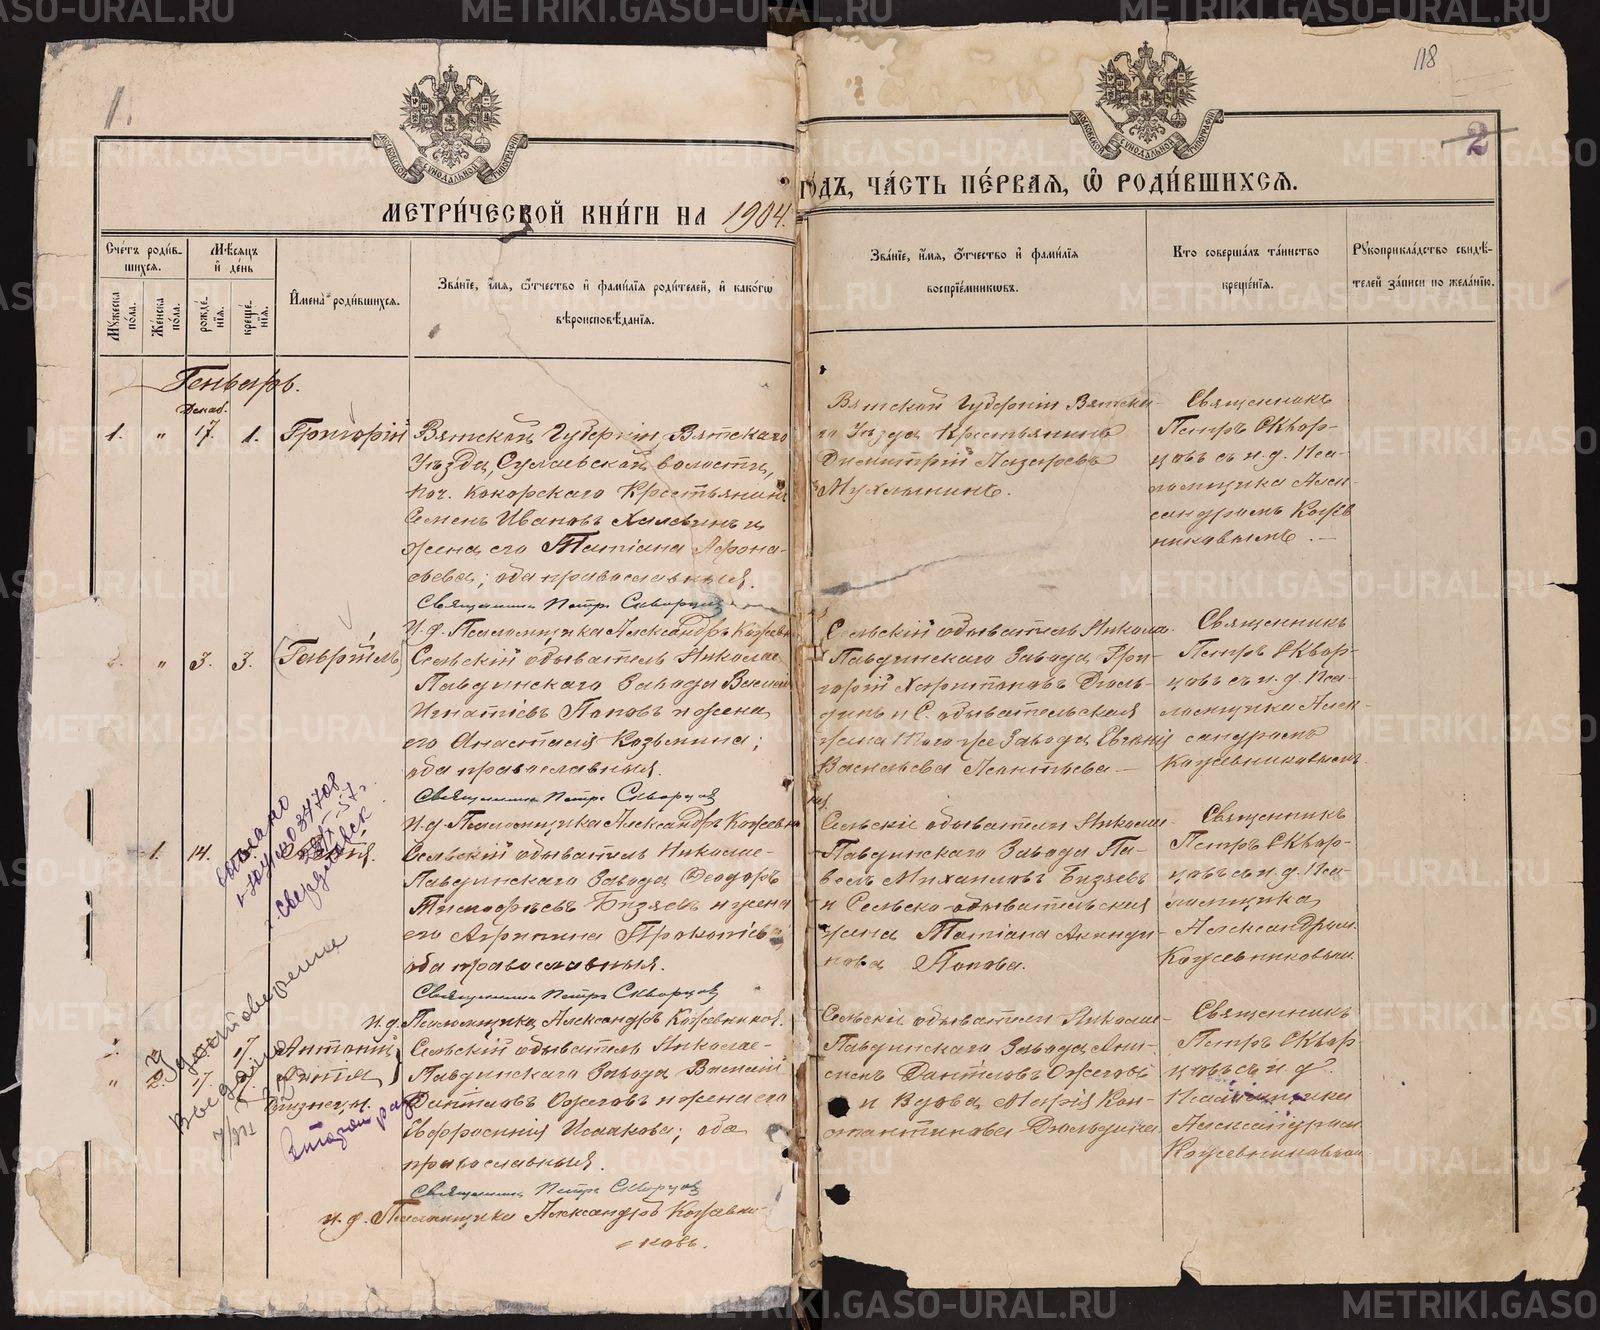 1.
118
2
МОСКОВСКОЙ СѴНОДАЛЬНОЙ ТИПОГРАФІИ
МОСКОВСКОЙ СѴНОДАЛЬНОЙ ТИПОГРАФІИ
МЕТРИ́ЧЕСКОЙ КНИ́ГИ НА 1904.
ГО́ДЪ, ЧА́СТЬ ПЕ́РВАѦ, Ѡ҆ РОДИ́ВШИХСѦ.
Сче́тъ роди́в-
шихсѧ.
Мѣ́сѧцъ
и҆ де́нь
Мꙋ́жеска по́ла.
Же́нска по́ла.
рожде́-
нїѧ.
креще́-
нїѧ.
И҆мена̀ роди́вшихсѧ.
Зва́нїе, и҆́мѧ, ѻ҆́тчество и҆ фами́лїѧ роди́телей, и҆ како́гѡ
вѣроисповѣ́данїѧ.
Зва́нїе, и҆́мѧ, ѻ҆́тчество и҆ фами́лїѧ
воспрїе́мникѡвъ.
Кто̀ соверша́лъ та́инство
креще́нїѧ.
Рꙋкоприкла́дство свидѣ́-
телей за́писи по жела́нїю.
Генварь.
Декаб.
1. " 17. 1. Григорій
Вятской Губерніи, Вятскаго
Уѣзда, Сулаевской волости,
поч. Кокорскаго Крестьянинъ
Семенъ Ивановъ и
жена его Татіана Афона-
сьева; оба православныя.
Священникъ Петръ Скворцовъ
И. д. Псаломщика Александръ Кожевн
Вятской Губерніи Вятска-
го Уѣзда Крестьянинъ
Димитрій Лазаревъ
Мухлынинъ.
Священникъ
Петръ Сквор-
цовъ съ и. д. Пса-
ломщика Алек-
сандромъ Кожев
никовымъ.
2. " 3. 3. Гавріилъ
Сельскій обыватель Николае-
Павдинскаго Завода Василій
Игнатіевъ Поповъ и жена
его Анастасія Козьмина;
оба православныя.
Священникъ Петръ Скворцовъ
И. д. Псаломщика Александръ Кожевн
Сельскій обыватель Никола-
Павдинскаго Завода Гри-
горій Харитоновъ Дюль-
динъ и С. обывательская
жена того же Завода Евгенія
Васильева Леонтьева
Священникъ
Петръ Сквор-
цовъ съ и. д. Пса-
ломщика Алек-
сандромъ
Кожевниковымъ
1. 14.
Сельскій обыватель Николае-
Павдинскаго Завода Ѳеодоръ
Тимофѣевъ Бизяевъ и жена
его Агрипина Прокопіева
оба православныя.
Священникъ Петръ Скворцовъ
и. д. Псаломщика Александръ Кожевников.
Сельскіе обыватели Никола-
Павдинскаго Завода Па-
велъ Михаиловъ Бизяевъ
и Сельско-обывательская
жена Татіана Акинди-
нова Попова.
Священникъ
Петръ Сквор-
цовъ съ и. д. Пса-
ломщика
Александром
Кожевниковым
свердловск
17 Антоній
" 2. 17
Близнецы.
Сельскій обыватель Николае-
Павдинскаго Завода Василій
Даніиловъ Ожеговъ и жена его
Евфросинія Исаакова; оба
православныя.
Священникъ Петръ Скворцовъ
и. д. Псаломщика Александръ Кожевни-
ковъ.
Сельскіе обыватели Никола-
Павдинскаго Завода Ани-
симъ Даніиловъ Ожеговъ
и Вдова Марія Кон-
стантинова Дюльдина
Священникъ
Петръ Сквор
цовъ съ и. д.
Псаломщика
Александром
Кожевниковым
Удостоверение
выдано
второй раз
METRIKI.GASO-URAL.RU